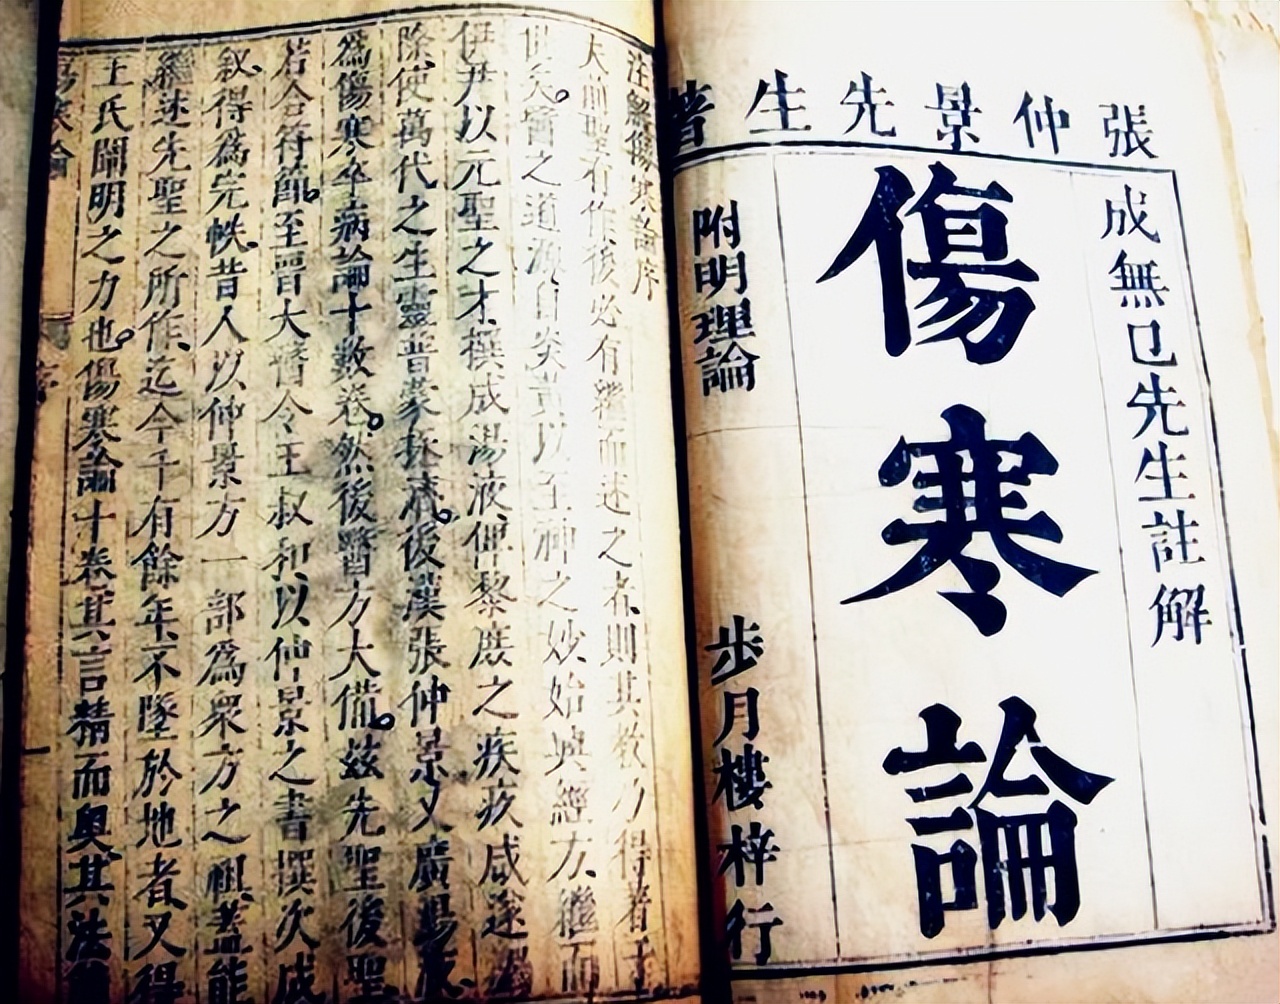 張仲景先生著
成無已先生註解
傷寒論
附明理論
步月樓梓行
注解傷寒論序
夫前聖有作後必有繼而述之者、則其教乃得著于
世矣。醫之道源自炎黃以至神之妙始興經方、繼而
伊尹以元聖之才、撰成湯液、俾黎庶之疾疢咸遂蠲
除、使萬代之生靈普蒙拯濟。後漢張仲景又廣湯液
爲傷寒卒病論十數卷。然後醫方大備。茲先聖後聖
若合符節。至晉大醫令王叔和、以仲景之書撰次成
叙、得爲完帙、昔人以仲景方一部爲眾方之祖、蓋能
繼述先聖之所作、迄今千有餘年、不墜於地者、又得
王氏闡明之力也。傷寒論十卷、其言精而奧、其法簡